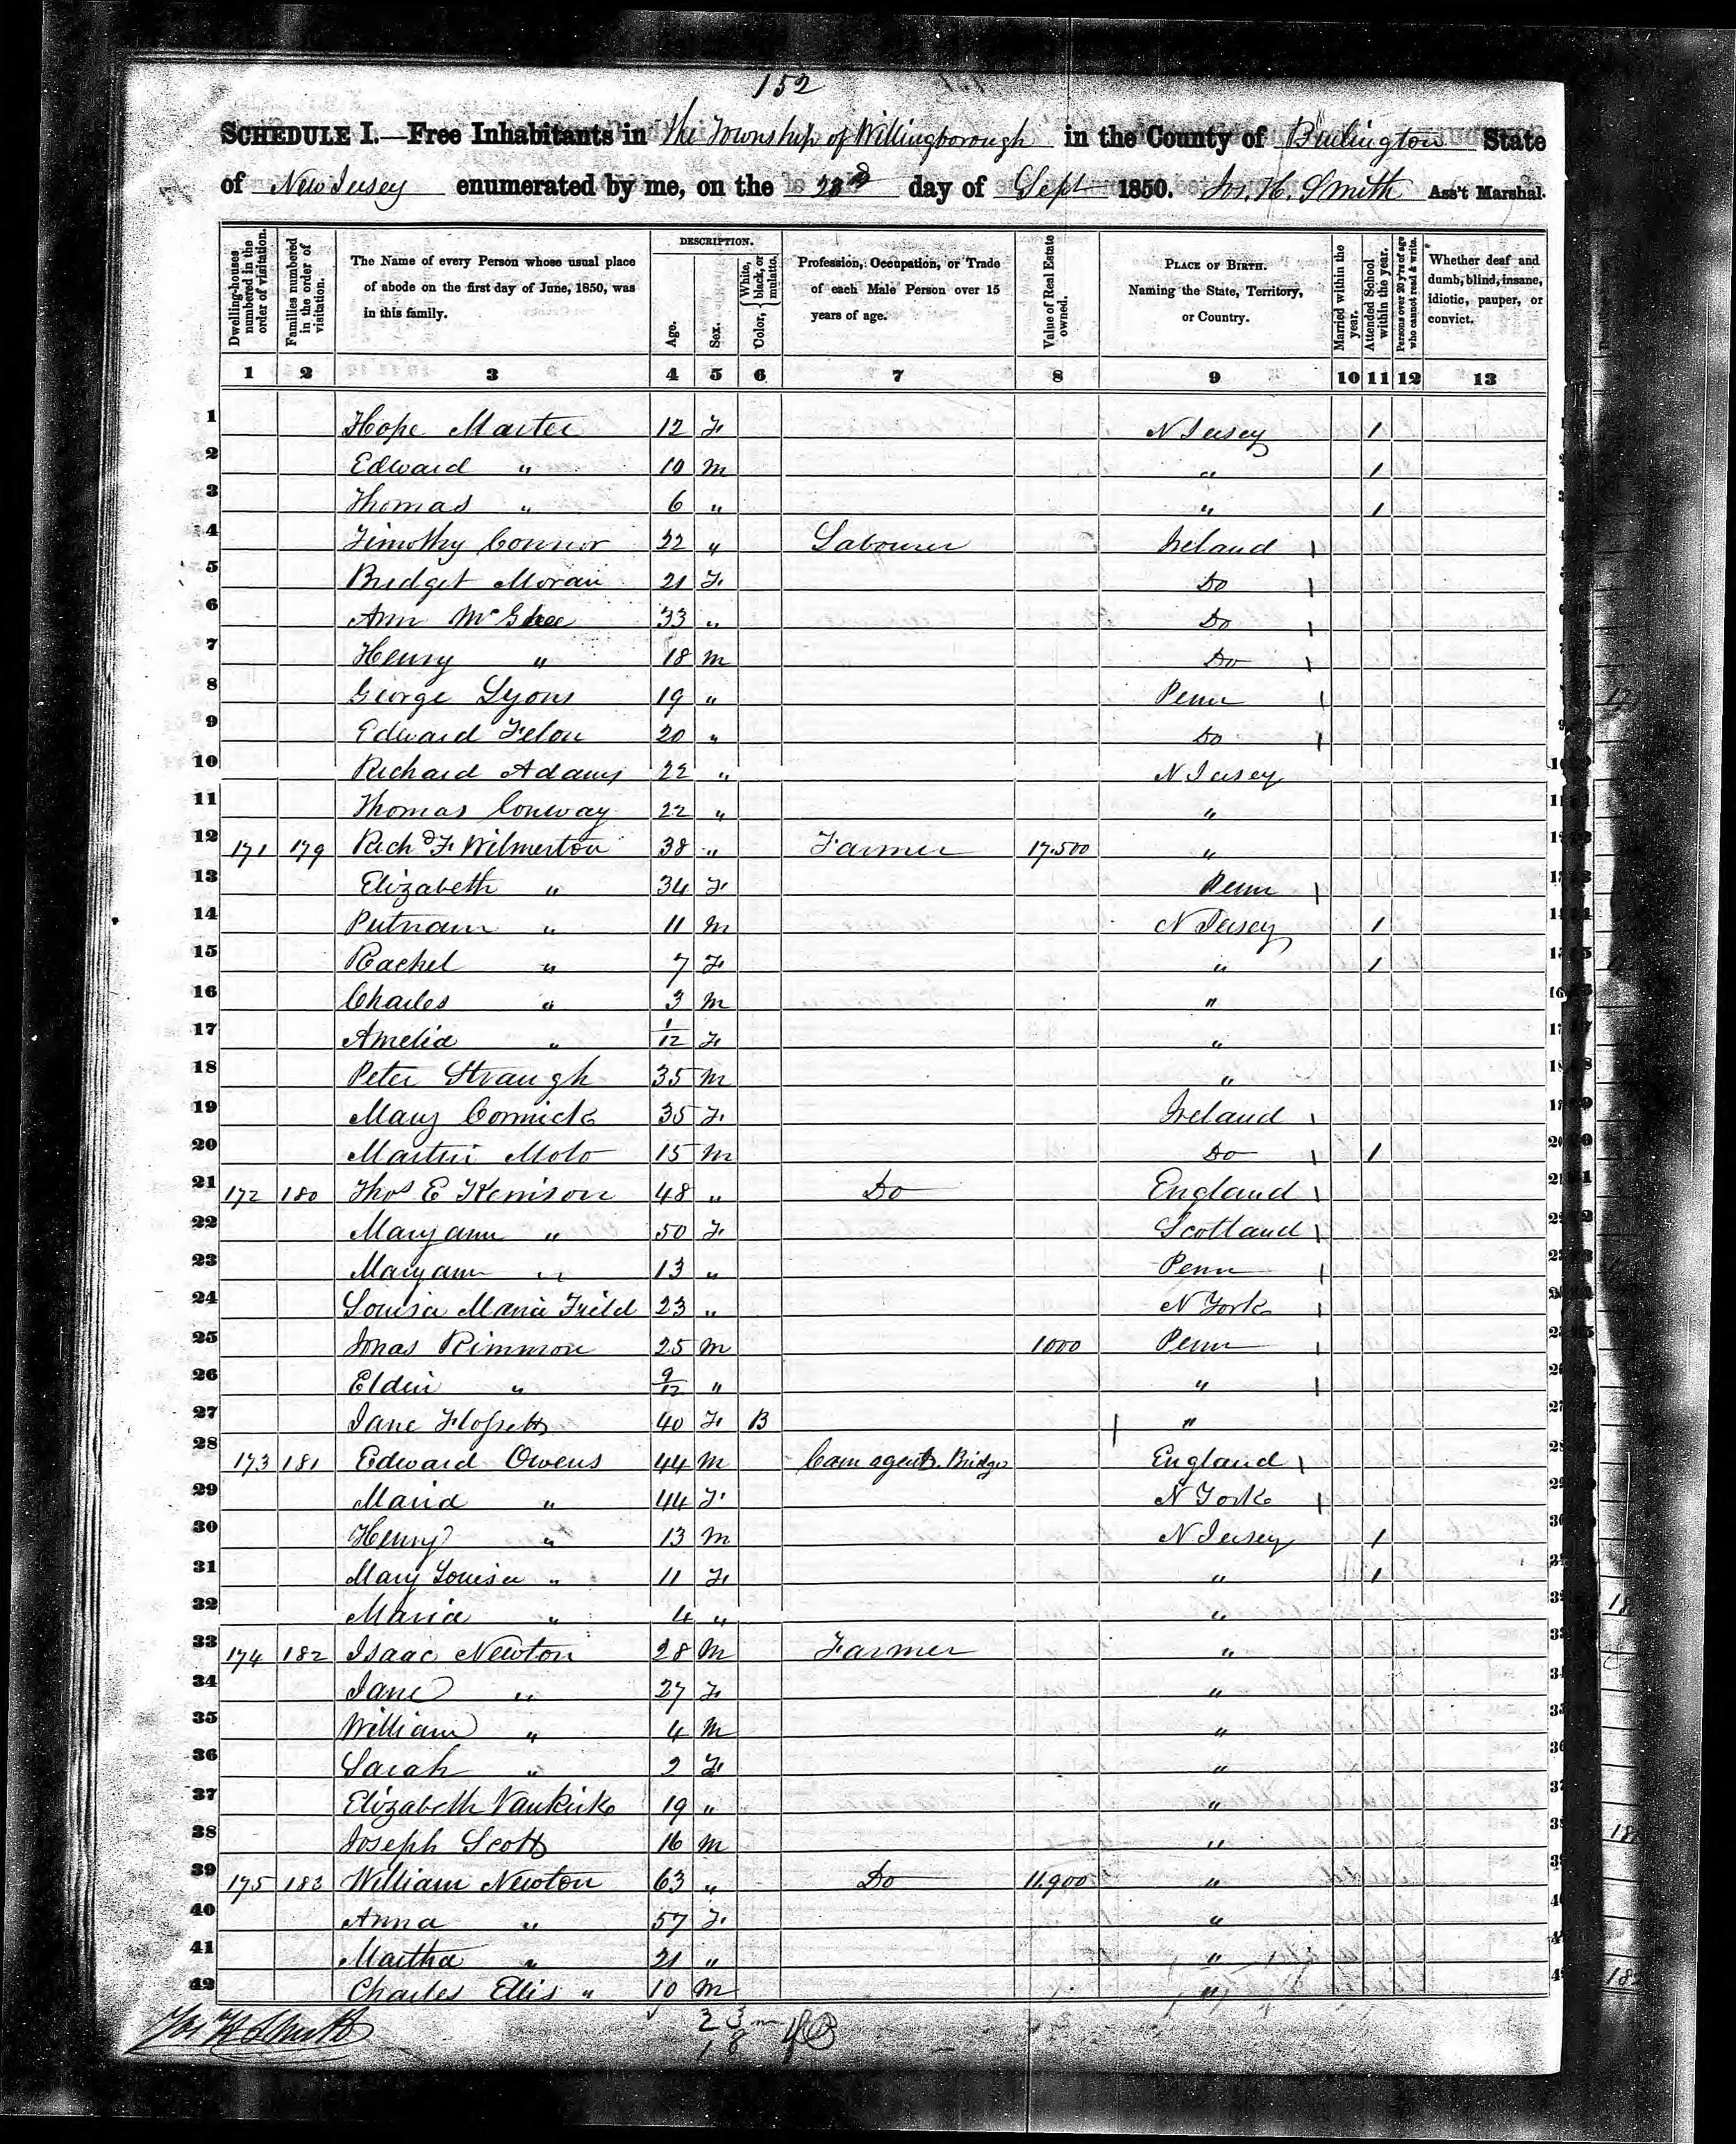 152
SCHEDULE I.—Free Inhabitants in the Township of Willingborough in the County of Burlington State
of New Jersey enumerated by me, on the 23d day of Sept 1850. Jos. H. Smith Ass't Marshal.
Dwelling-houses numbered in the order of visitation.
Families numbered in the order of visitation.
The Name of every Person whose usual place of abode on the first day of June, 1850, was in this family.
DESCRIPTION.
Age.
Sex.
Color, { White, black, or mulatto.
Profession, Occupation, or Trade of each Male Person over 15 years of age.
Value of Real Estate owned.
PLACE OF BIRTH. Naming the State, Territory, or Country.
Married within the year.
Attended School within the year.
Persons over 20 y'rs of age who cannot read & write.
Whether deaf and dumb, blind, insane, idiotic, pauper, or convict.
1 2 3 4 5 6 7 8 9 10 11 12 13
1 Hope Marter 12 F N Jersey 1
2 Edward " 10 M " 1
3 Thomas " 6 " " 1
4 Timothy Connor 22 " Labourer Ireland
5 Bridget Moran 21 F Do
6 Ann 33 " Do
7 Henry " 18 M Do
8 George Lyons 19 " Penn
9 Edward Felon 20 " Do
10 Richard Adams 22 " N Jersey
11 Thomas Conway 22 " "
12 171 179 Richd F. Wilmerton 38 " Farmer 17.500 "
13 Elizabeth " 34 F Penn
14 Putnam " 11 M N Jersey 1
15 Rachel " 7 F " 1
16 Charles " 3 M "
17 Amelia " 1/12 F "
18 Peter Straugh 35 M "
19 Mary Cormick 35 F Ireland
20 Martin Molo 15 M Do 1
21 172 180 Thos E Kenison 48 " Do England
22 Maryann " 50 F Scotland
23 Maryann " 13 " Penn
24 Louisa Maria Field 23 " N York
25 Jonas Rimmon 25 M 1000 Penn
26 " 9/12 " "
27 Jane 40 F B "
28 173 181 Edward Owens 44 M Cam agent. Bridge England
29 Maria " 44 F N York
30 Henry " 13 M N Jersey 1
31 Mary Louisa " 11 F " 1
32 Maria " 4 " "
33 174 182 Isaac Newton 28 M Farmer "
34 Jane " 27 F "
35 William " 4 M "
36 Sarah " 2 F "
37 Elizabeth Vankirk 19 " "
38 Joseph Scott 16 M "
39 175 183 William Newton 63 " Do 11.900 "
40 Anna " 57 F "
41 Martha " 21 " "
42 Charles Ellis " 10 M "
Jos H Smith
23 m
18